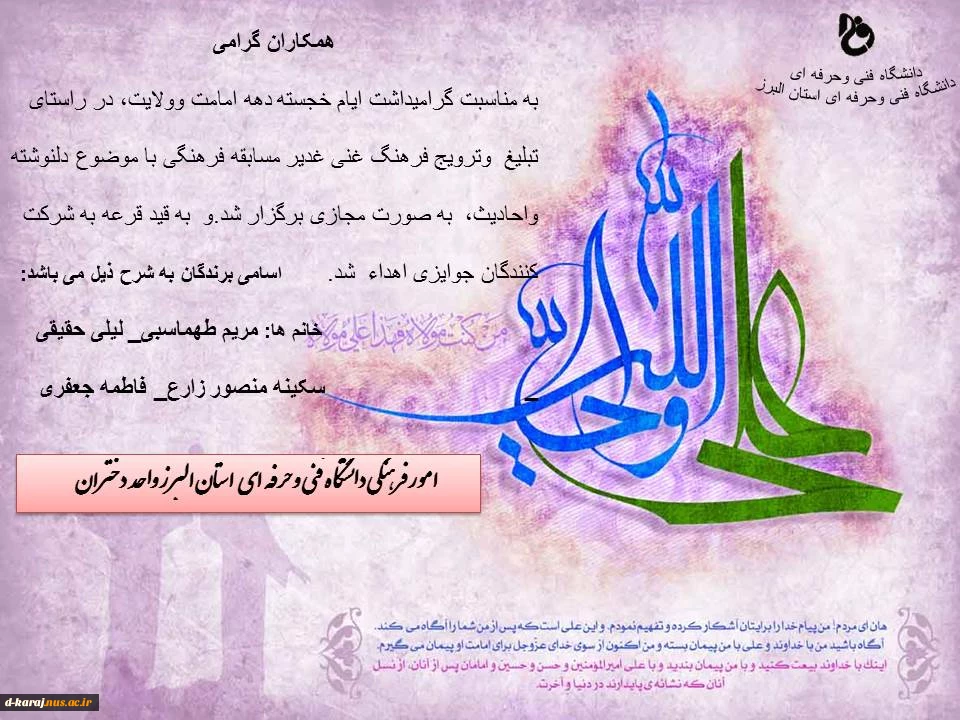 دانشگاه فنی وحرفه ای
دانشگاه فنی وحرفه ای استان البرز
همکاران گرامی
به مناسبت گرامیداشت ایام خجسته دهه امامت وولایت، در راستای
تبلیغ وترویج فرهنگ غنی غدیر مسابقه فرهنگی با موضوع دلنوشته
واحادیث، به صورت مجازی برگزار شد.و به قید قرعه به شرکت
کنندگان جوایزی اهداء شد. اسامی برندگان به شرح ذیل می باشد:
خانم ها: مریم طهماسبی_ لیلی حقیقی
_ سکینه منصور زارع_ فاطمه جعفری
من کنت مولاه فهذا علی مولاه
علی
ولی الله
امور فرهنگی دانشگاه فنی و حرفه ای استان البرز واحد دختران
هان ای مردم! من پیام خدا را برایتان آشکار کرده و تفهیم نمودم. و این علی است که پس از من شما را آگاه می کند.
آگاه باشید من با خداوند و علی با من پیمان بسته و من اکنون از سوی خدای عزّوجل برای امامت او پیمان می گیرم.
اینک با خداوند بیعت کنید و با من پیمان بندید و با علی امیرالمؤمنین و حسن و حسین و امامان پس از آنان، از نسل
آنان که نشانه ی پایدارند در دنیا و آخرت.
d-karaj.nus.ac.ir